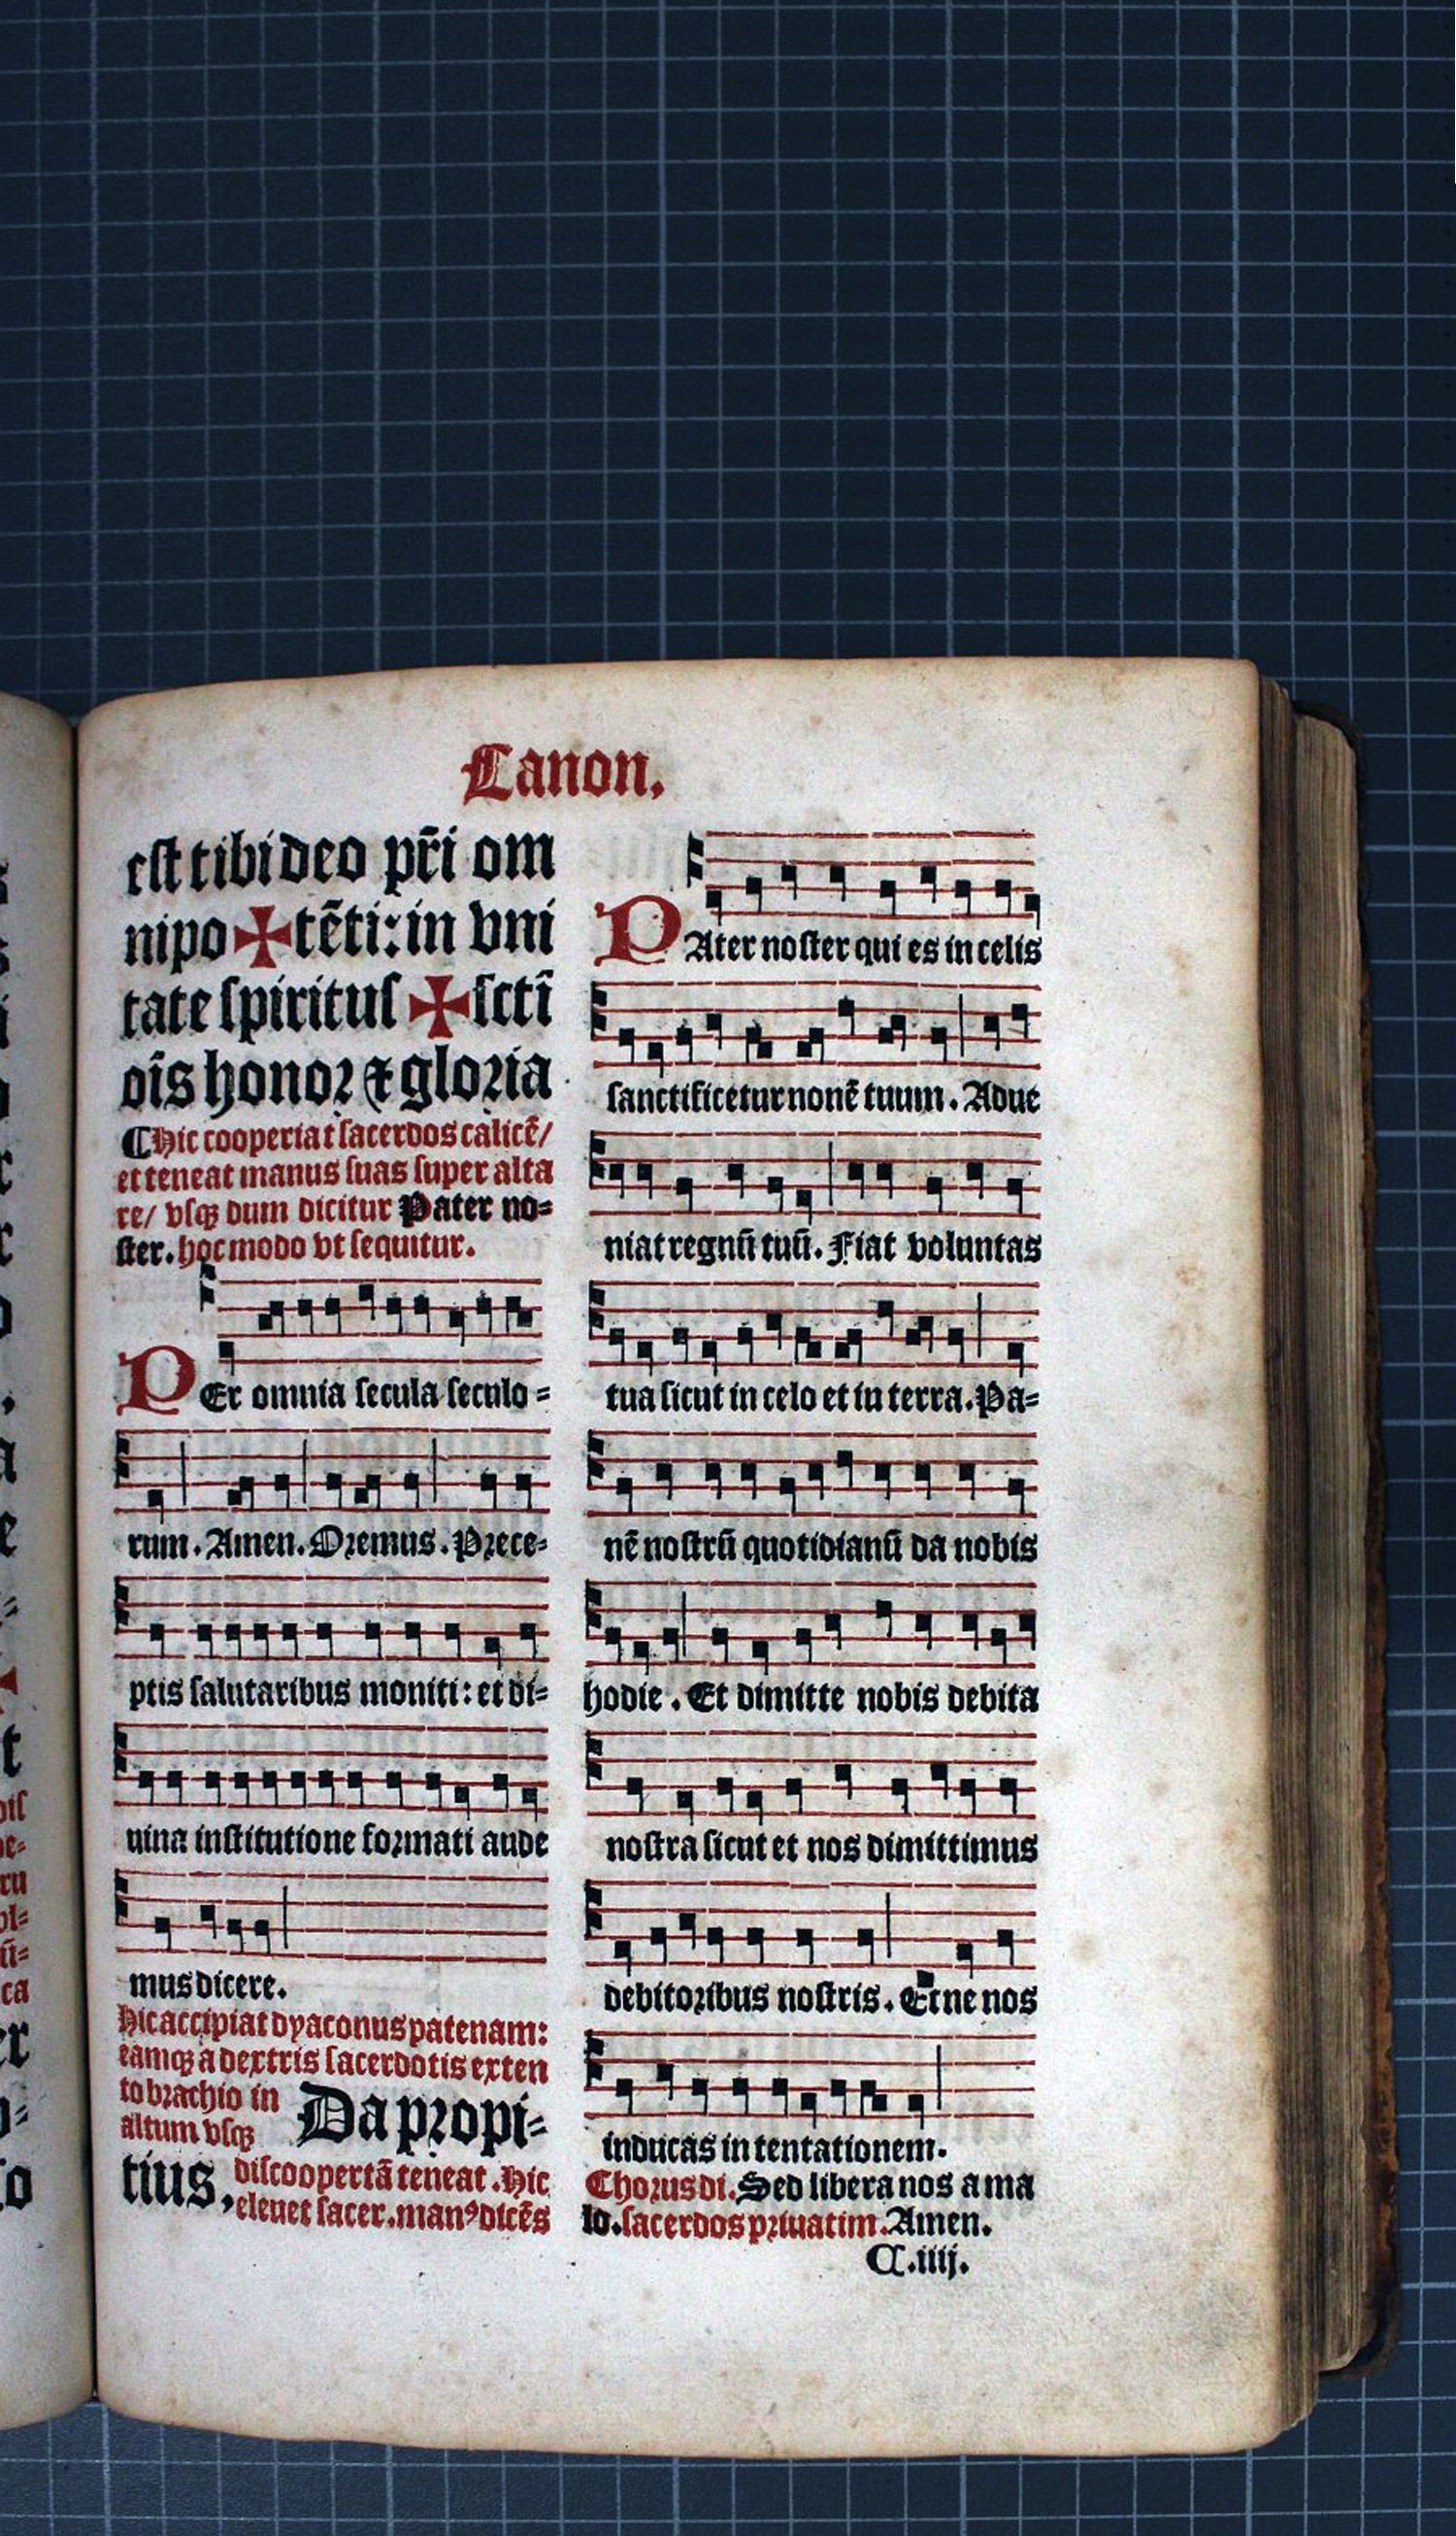 Canon.
est tibi deo pr̄i om
nipo✠tēti: in vni
tate spiritus ✠ scti
oīs honor & gloria
¶Hic cooperiat sacerdos calicē/
et teneat manus suas super alta
re/ vsqꝫ dum dicitur Pater no=
ster. hoc modo vt sequitur.
PEr omnia secula seculo=
rum. Amen. Oremus. Prece=
ptis salutaribus moniti: et di=
uina institutione formati aude
mus dicere.
Hic accipiat dyaconus patenam:
eamqꝫ a dextris sacerdotis exten
to brachio in
altum vsqꝫ Da propi=
tius, discoopertā teneat. Hic
eleuet sacer. manꝰ dicēs
PAter noster qui es in celis
sanctificetur nonē tuum. Adue
niat regnū tuū. Fiat voluntas
tua sicut in celo et in terra. Pa=
nē nostrū quotidianū da nobis
hodie. Et dimitte nobis debita
nostra sicut et nos dimittimus
debitoribus nostris. Et ne nos
inducas in tentationem.
Chorus di. Sed libera nos a ma
lo. sacerdos priuatim. Amen.
C.iiij.